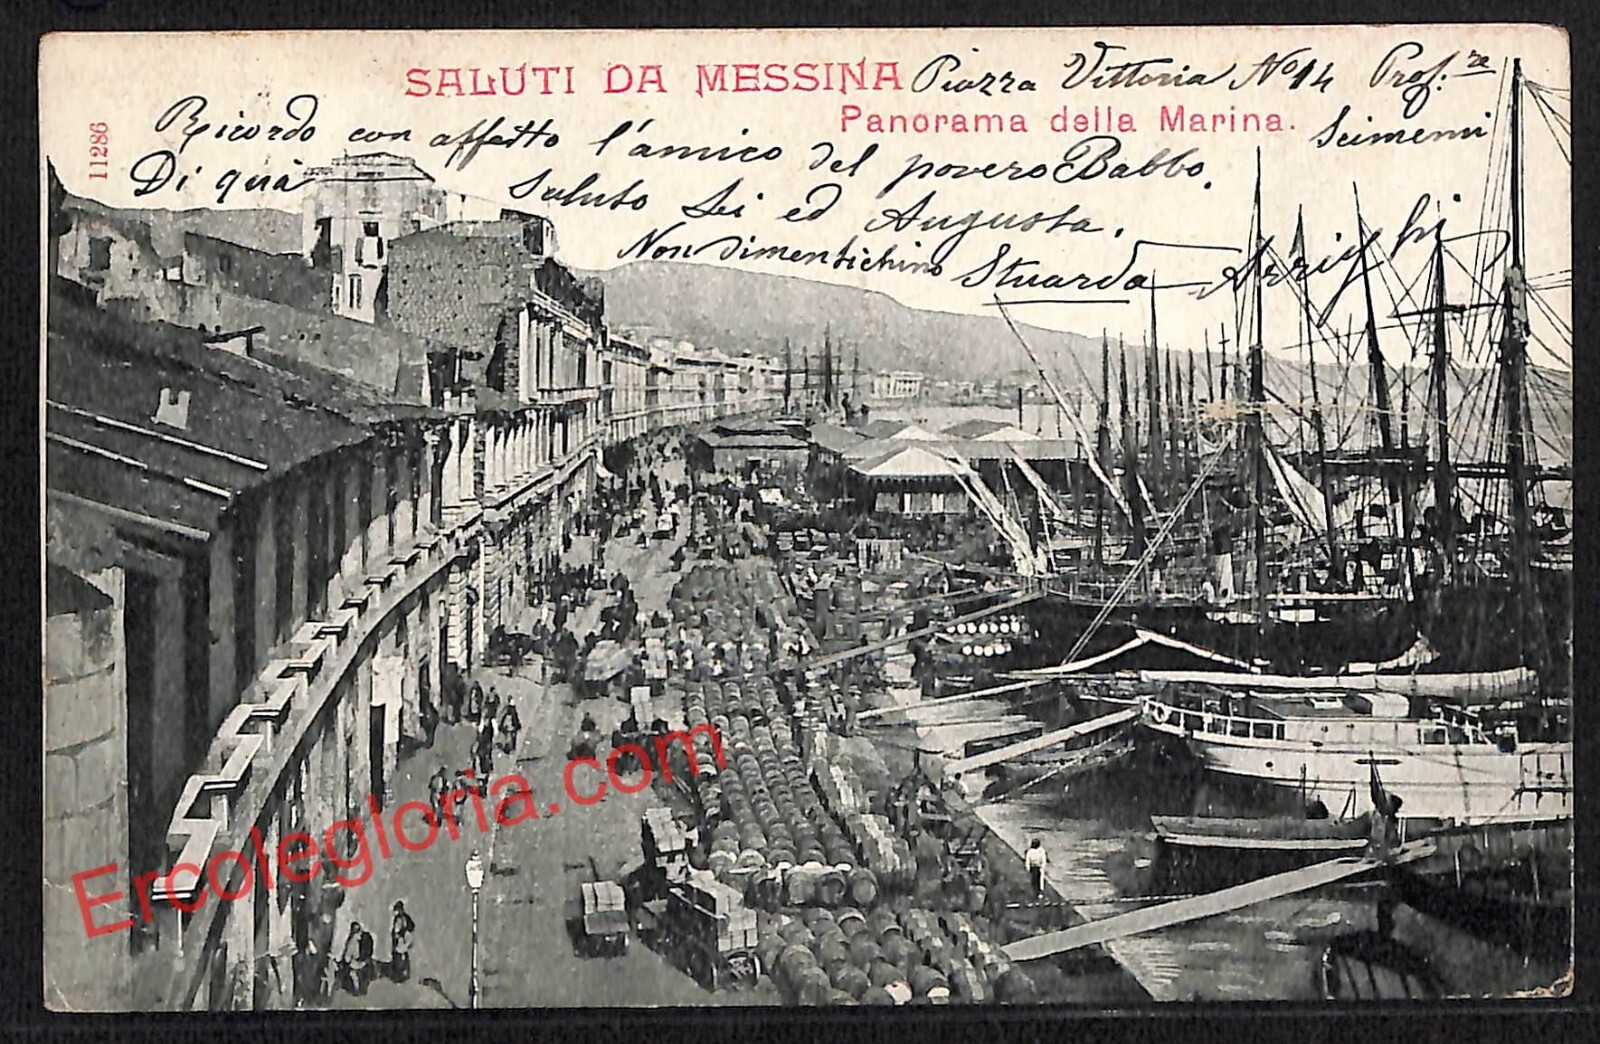 SALUTI DA MESSINA Piazza Vittoria No 14 Prof.re
Panorama della Marina. Scimemi
11286
Ricordo con affetto l'amico del povero Babbo.
Di quà saluto Lei ed Augusta.
Non dimentichino Stuarda Arrighi
Ercolegloria.com